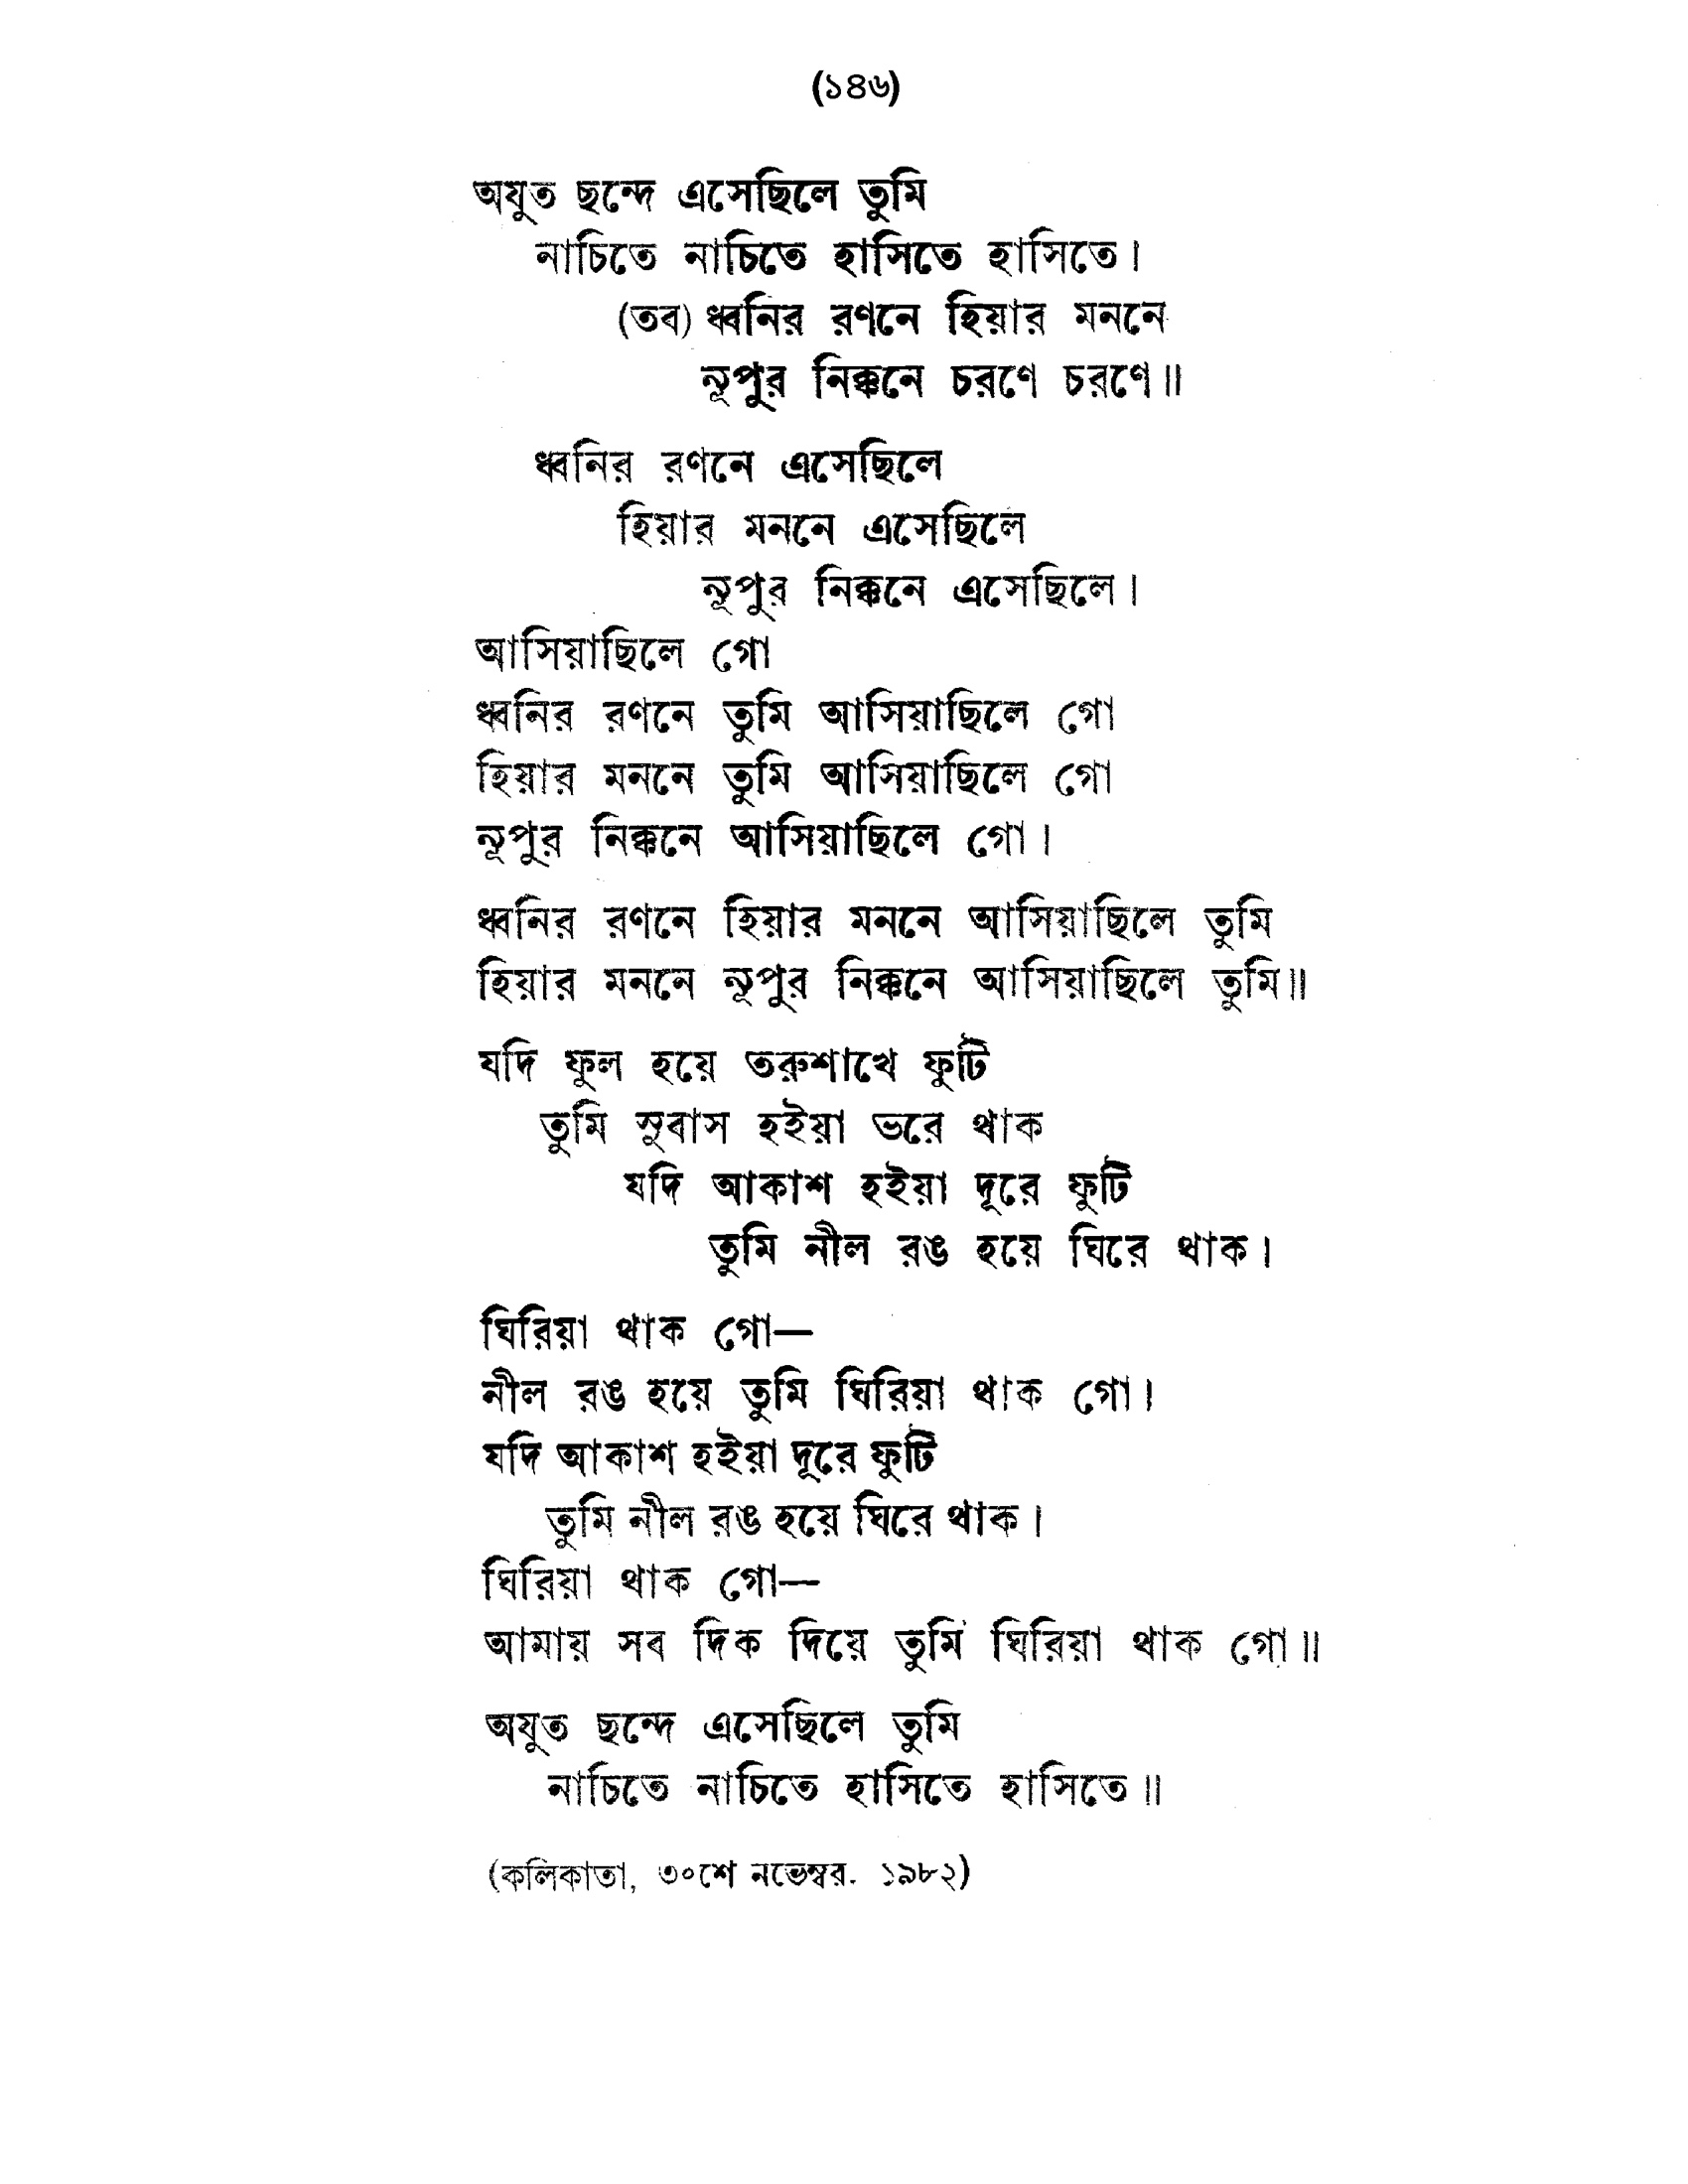 (১৪৬)
অযুত ছন্দে এসেছিলে তুমি
নাচিতে নাচিতে হাসিতে হাসিতে।
(তব) ধ্বনির রণনে হিয়ার মননে
নূপুর নিক্কনে চরণে চরণে॥
ধ্বনির রণনে এসেছিলে
হিয়ার মননে এসেছিলে
নূপুর নিক্কনে এসেছিলে।
আসিয়াছিলে গো
ধ্বনির রণনে তুমি আসিয়াছিলে গো
হিয়ার মননে তুমি আসিয়াছিলে গো
নূপুর নিক্কনে আসিয়াছিলে গো।
ধ্বনির রণনে হিয়ার মননে আসিয়াছিলে তুমি
হিয়ার মননে নূপুর নিক্কনে আসিয়াছিলে তুমি॥
যদি ফুল হয়ে তরুশাখে ফুটি
তুমি সুবাস হইয়া ভরে থাক
যদি আকাশ হইয়া দূরে ফুটি
তুমি নীল রঙ হয়ে ঘিরে থাক।
ঘিরিয়া থাক গো—
নীল রঙ হয়ে তুমি ঘিরিয়া থাক গো।
যদি আকাশ হইয়া দূরে ফুটি
তুমি নীল রঙ হয়ে ঘিরে থাক।
ঘিরিয়া থাক গো—
আমায় সব দিক দিয়ে তুমি ঘিরিয়া থাক গো॥
অযুত ছন্দে এসেছিলে তুমি
নাচিতে নাচিতে হাসিতে হাসিতে॥
(কলিকাতা, ৩০শে নভেম্বর. ১৯৮২)